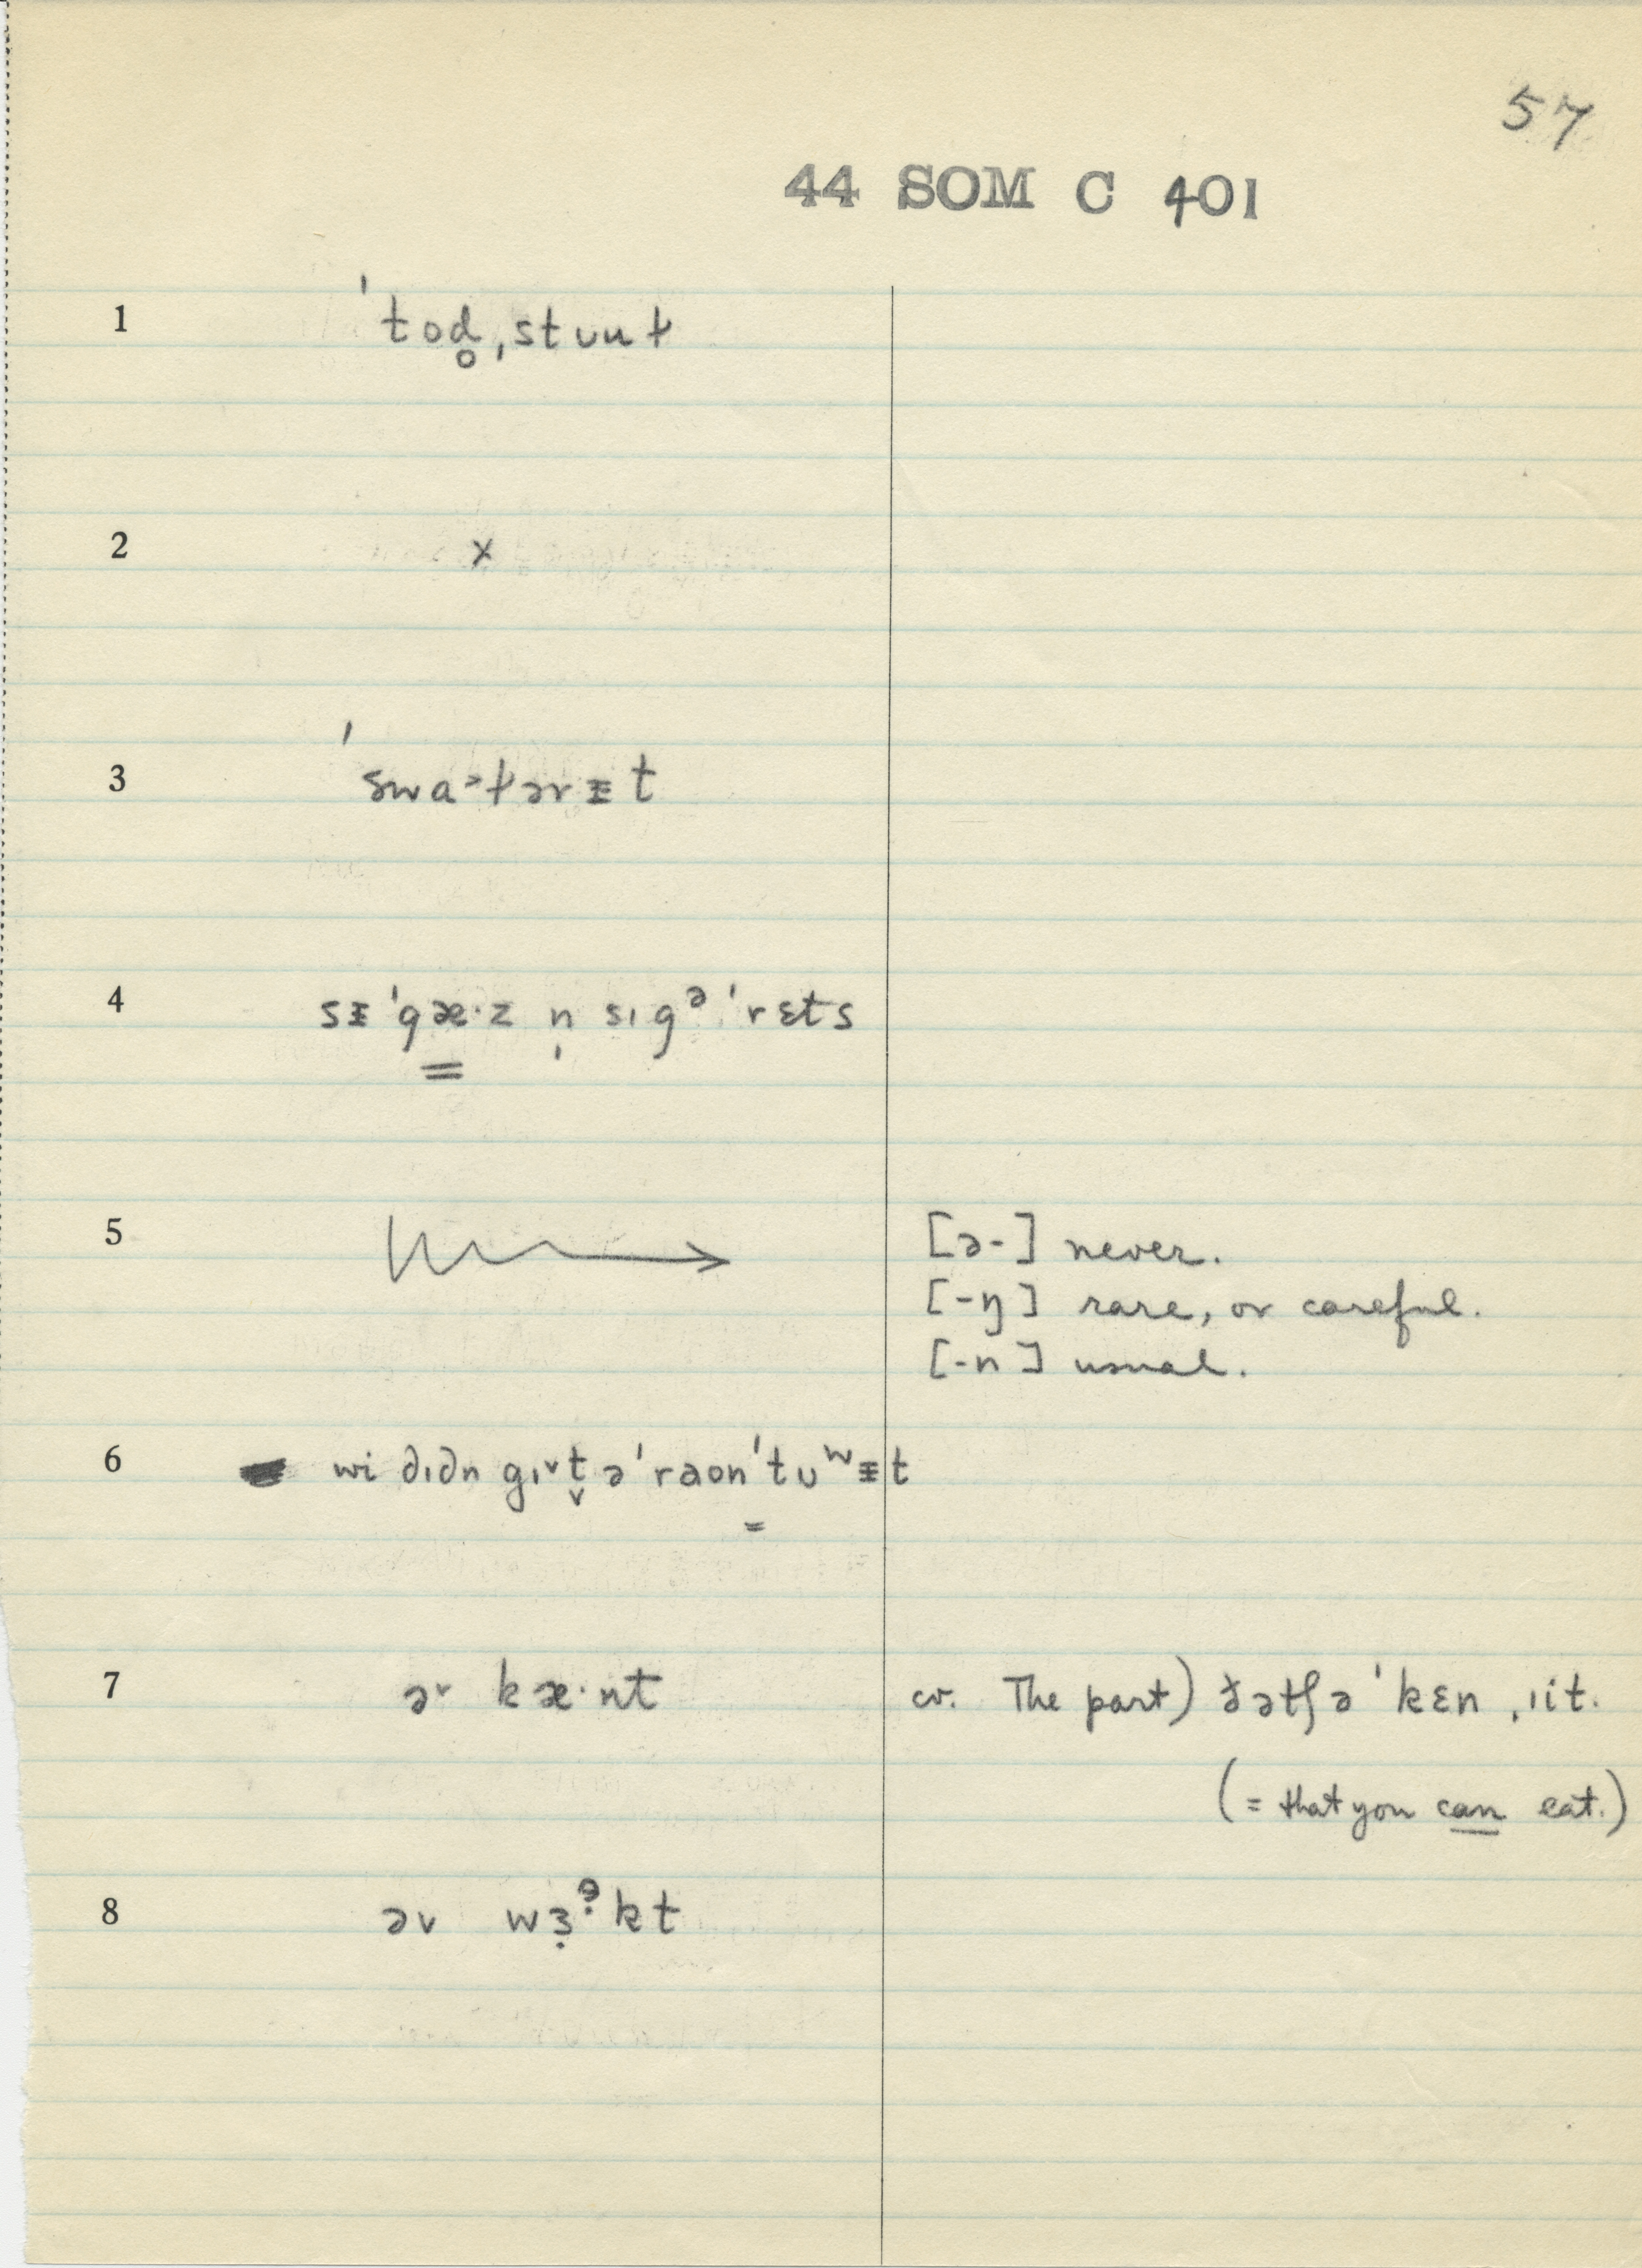 57
44 SOM C 401
1 ˈtod̥ˌstuuɫ
2 x
3 ˈswa˃ɫərᵻt
4 sᵻˈgæ·z n̩ sɪgᵊˈrɛts
5 [ə-] never.
[-ŋ] rare, or careful.
[-n] usual.
6 wi dɪdn gɪvt̬ əˈraonˈtuʷᵻt
7 əv kæ·nt cv. The part) ðətʃəˈkɛn ˌiit.
(= that you can eat.)
8 əv wɜ̣ᵊ̣kt